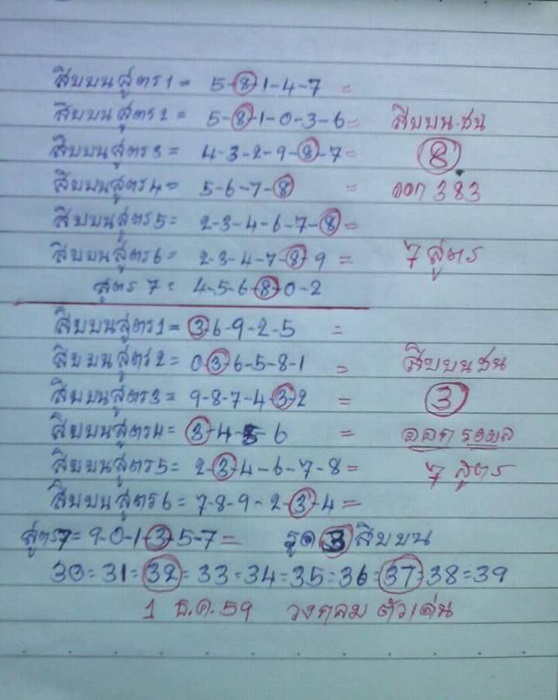 สิบบนสูตร1 = 5-8-1-4-7 =
สิบบนสูตร2 = 5-8-1-0-3-6= สิบบน.ชน
สิบบนสูตร3 = 4-3-2-9-8-7= 8
สิบบนสูตร4= 5-6-7-8 = ออก 383
สิบบนสูตร5= 2-3-4-6-7-8=
สิบบนสูตร6= 2-3-4-7-8-9 = 7 สูตร
สูตร 7= 4-5-6-8-0-2
สิบบนสูตร1 = 3-6-9-2-5 =
สิบบนสูตร2= 0-3-6-5-8-1 = สิบบนชน
สิบบนสูตร3= 9-8-7-4-3-2 = 3
สิบบนสูตร4= 3-4-5-6 =
สิบบนสูตร5= 2-3-4-6-7-8= 7 สูตร
สิบบนสูตร6= 7-8-9-2-3-4=
สูตร7= 9-0-1-3-5-7= รูด 3 สิบบน
30=31=32=33=34=35=36=37=38=39
1 ธ.ค.59 วงกลม ตัวเด่น